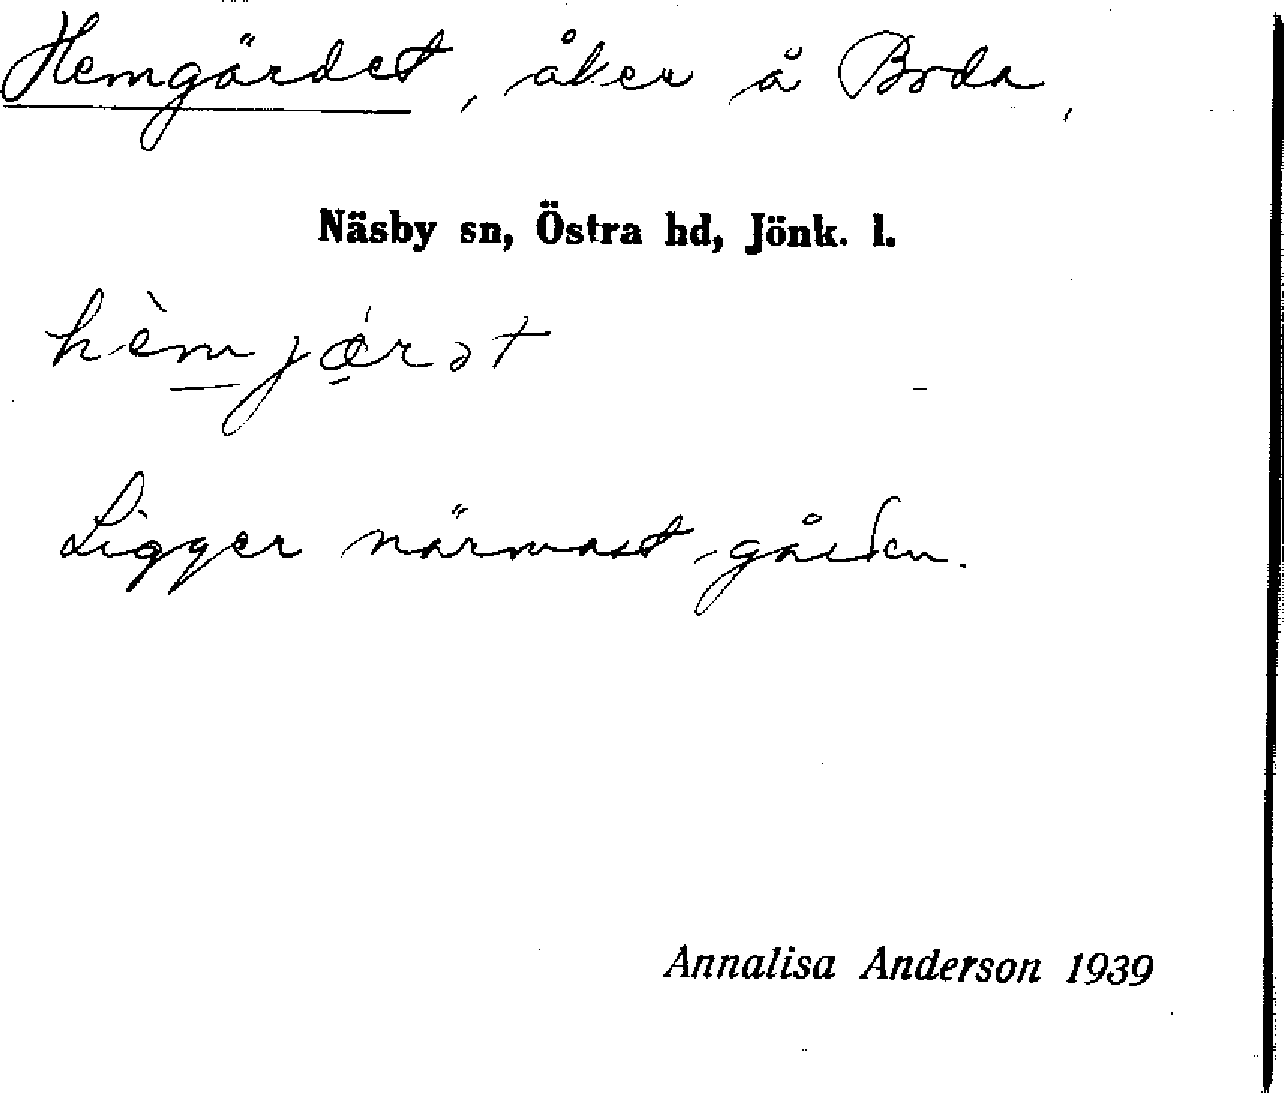 Hemgärdet, åker å Boda,
Näsby sn, Östra hd, Jönk. l.
hèmjǽrət
Ligger närmast gården.
Annalisa Anderson 1939